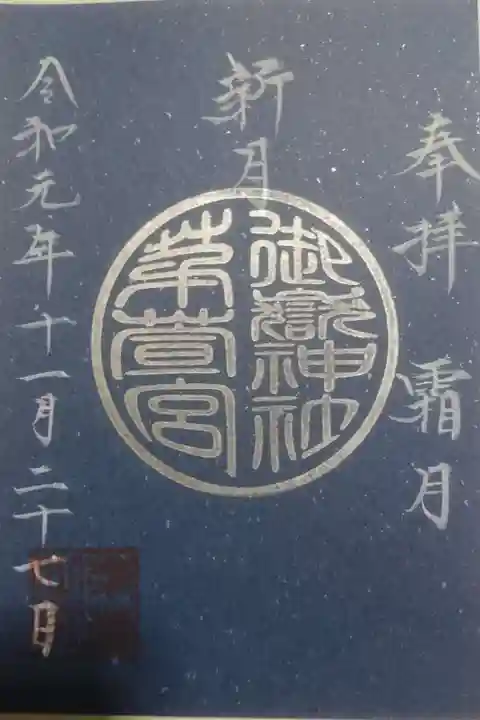 奉拝 霜月
新月
御嶽神社
茅萱宮
令和元年十一月二十七日